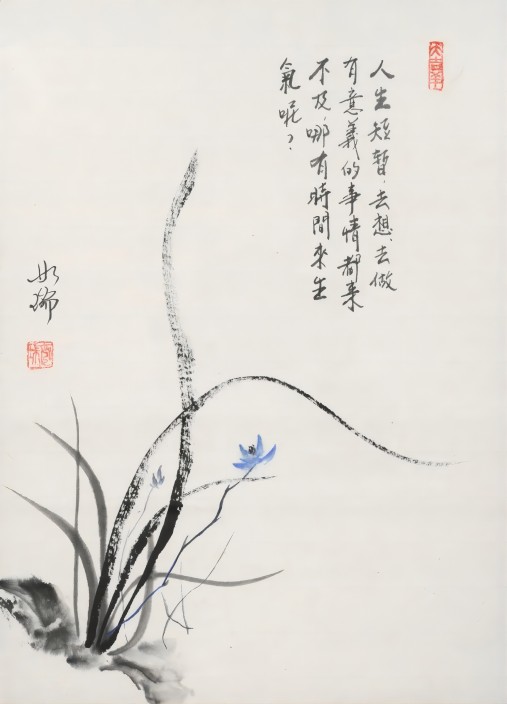 人生短暫,去想,去做
有意義的事情都来
不及,哪有時間來生
氣呢?
如瑞